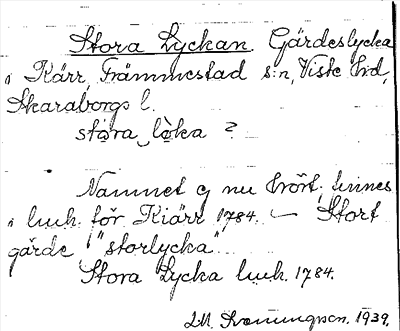 Stora Lyckan. Gärdeslycka
i Kärr, Främmestad s:n, Viste hd,
Skaraborgs l.
stora lòka ?
Namnet ej nu hört, finnes
i luh. för Kiärr 1784. — Stort
gärde, "storlycka".
Stora Lycka luh. 1784.
1939.